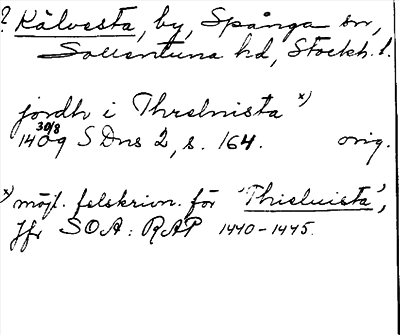 ? Kälvesta, by, Spånga sn,
Sollentuna hd, Stockh. l.
jordh i Threlnista x)
30/8
1409 SDns 2, s. 164. orig.
x) möjl. felskrivn. för 'Thieluista',
Jfr SOA: RAP 1440-1445.